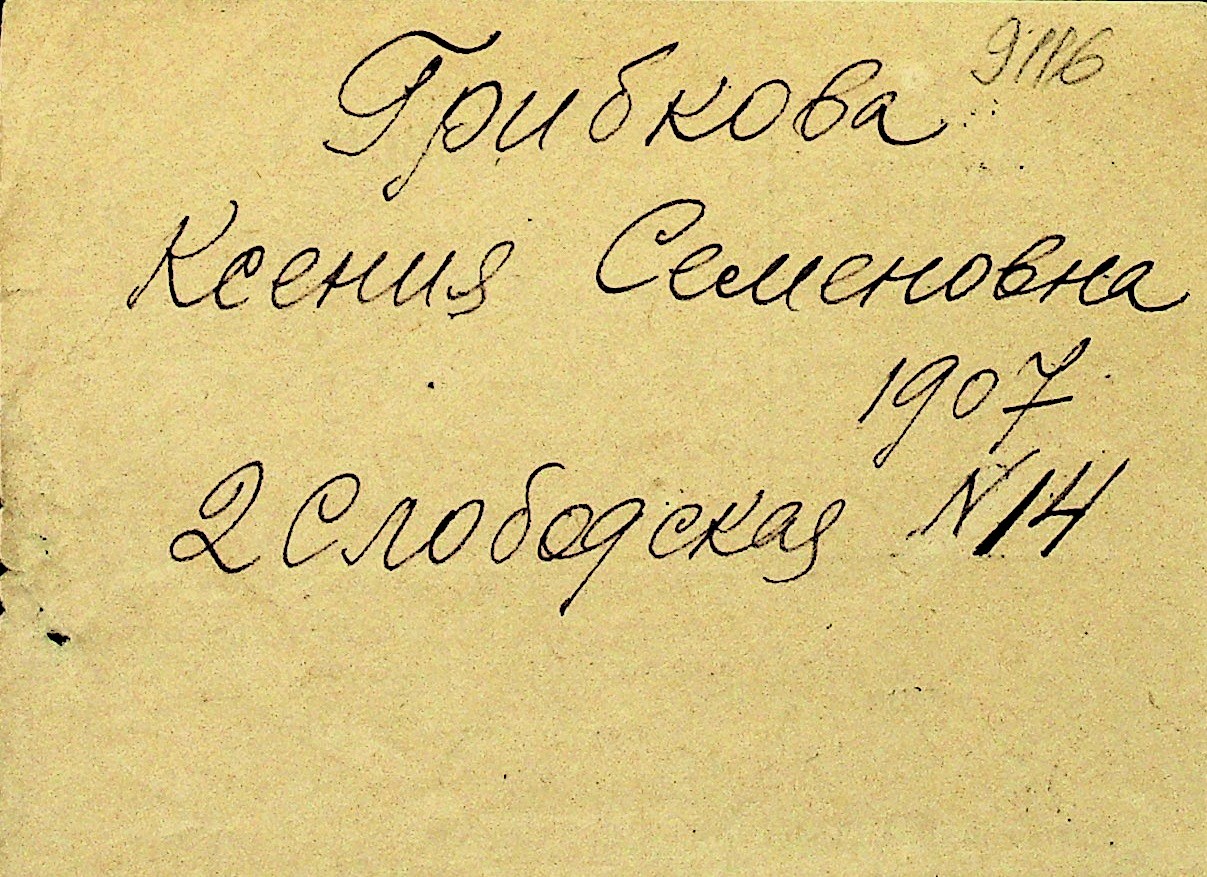 9116
Грибкова
Ксения Семеновна
1907
2 Слободская N14